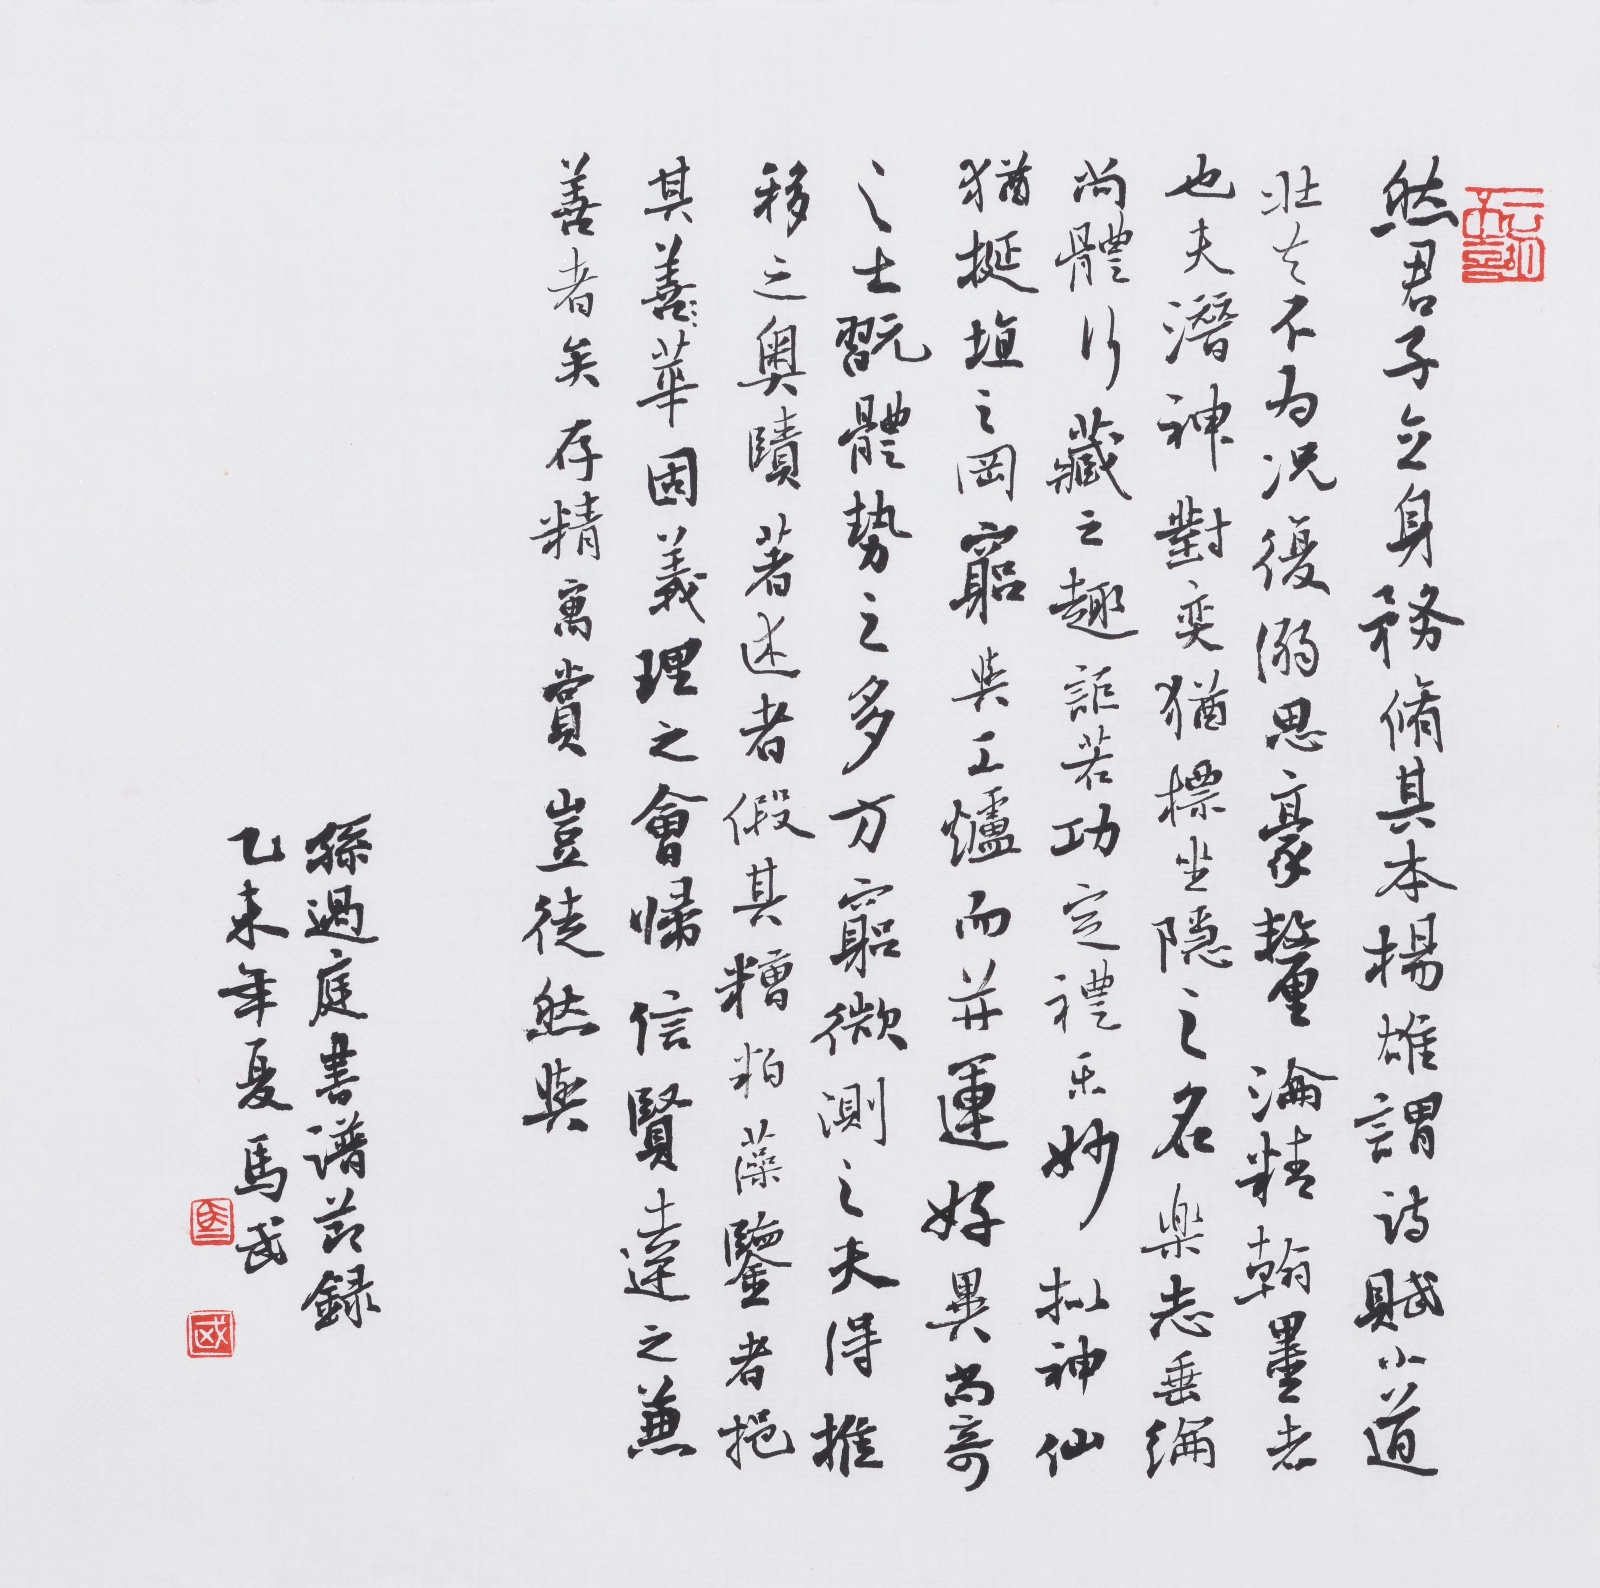 然君子立身務脩其本楊雄謂詩賦小道
壯夫不为况復溺思豪釐淪精翰墨者
也夫潛神對奕猶標坐隐之名楽志垂綸
尚體行藏之趣詎若功定禮乐妙拟神仙
猶挻埴之罔窮與工爐而并運好異尚奇
之士翫體势之多方窮微測之夫得推
移之奥賾著述者假其糟粕藻鑒者挹
其善華固義理之會歸信賢達之兼
善者矣存精寓賞豈徒然與
孫過庭書谱節録
乙未年夏馬武